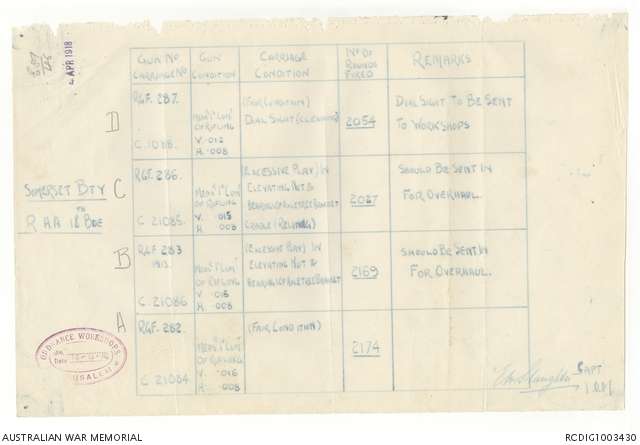 4 APR 1918
GUN No. CARRIAGE No. | GUN CONDITION | CARRIAGE CONDITION | No. OF ROUNDS FIRED | REMARKS
SOMERSET BTY
R HA 18TH BDE
D
RGF. 287.
C. 1088.
OF RIFLING
V. .012
H .008
(FAIR CONDITION)
DIAL SIGHT (CLEANING)
2054
DIAL SIGHT TO BE SENT
TO WORKSHOPS
C
RGF. 286.
C 21085.
OF RIFLING
V. .015
H .008
(EXCESSIVE PLAY) IN
ELEVATING NUT &
CRADLE
2027
SHOULD BE SENT IN
FOR OVERHAUL.
B
RGF 283
1913.
C. 21086
OF RIFLING
V. .018
H .008
(EXCESSIVE PLAY) IN
ELEVATING NUT &
2169
SHOULD BE SENT IN
FOR OVERHAUL.
A
RGF. 282.
C 21084
OF RIFLING
V .016
H .008
(FAIR CONDITION)
2174
ORDNANCE WORKSHOPS
Date
CAPT
AUSTRALIAN WAR MEMORIAL
RCDIG1003430